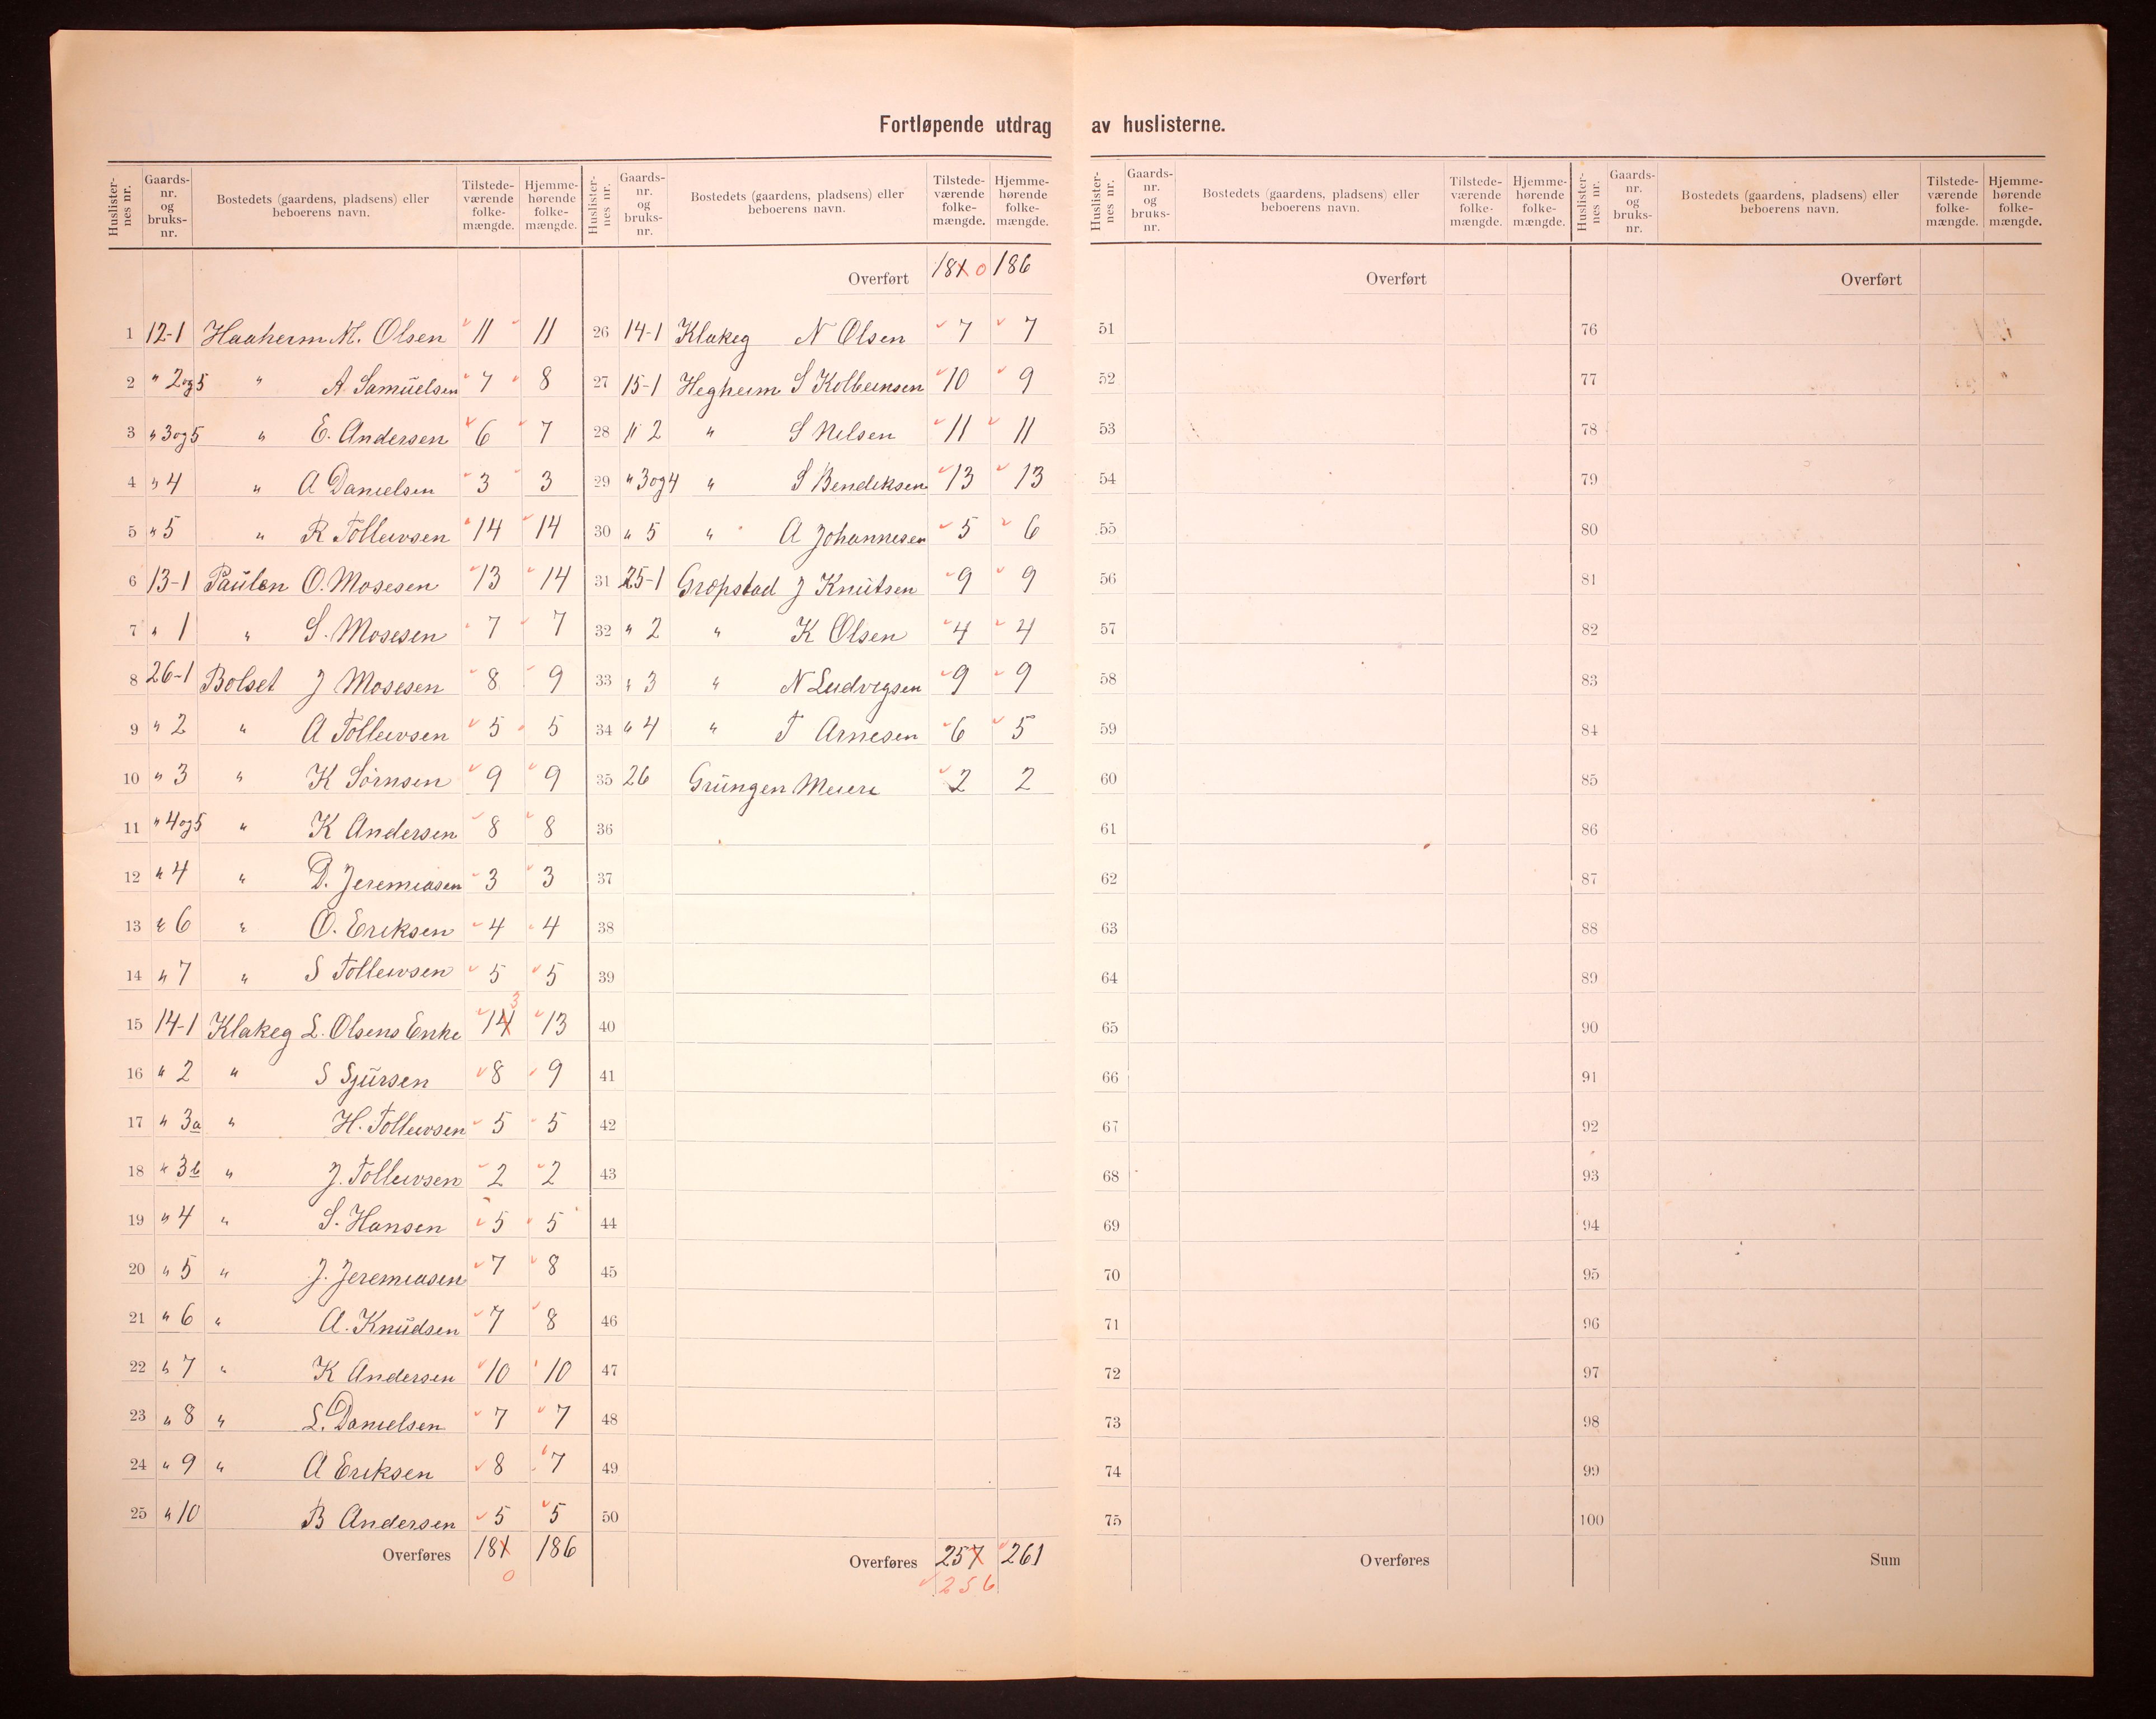 Fortløpende utdrag av huslisterne.
Huslisternes nr. Gaards-nr. og bruks-nr. Bostedets (gaardens, pladsens) eller beboerens navn. Tilstede-værende folke-mængde. Hjemme-hørende folke-mængde.
1 12-1 Haaheim M. Olsen 11 11
2 " 2og5 " A. Samuelsen 7 8
3 " 3og5 " E. Andersen 6 7
4 " 4 " A Danielsen 3 3
5 " 5 " R Tollevsen 14 14
6 13-1 Paulen O. Mosesen 13 14
7 " 1 " S. Mosesen 7 7
8 26-1 Bolset J Mosesen 8 9
9 " 2 " A Tollevsen 5 5
10 " 3 " K Sörnsen 9 9
11 " 4og5 " K Andersen 8 8
12 " 4 " D. Jeremiasen 3 3
13 " 6 " O. Eriksen 4 4
14 " 7 " S Tollevsen 5 5
15 14-1 Klakeg L. Olsens Enke 14 3 13
16 " 2 " S Sjursen 8 9
17 " 3a " H. Tollevsen 5 5
18 " 3b " J. Tollevsen 2 2
19 " 4 " S. Hansen 5 5
20 " 5 " J. Jeremiasen 7 8
21 " 6 " A. Knudsen 7 8
22 " 7 " K Andersen 10 10
23 " 8 " L. Danielsen 7 7
24 " 9 " A Eriksen 8 7
25 " 10 B Andersen 5 5
Overføres 181 186
0
Huslisternes nr. Gaards-nr. og bruks-nr. Bostedets (gaardens, pladsens) eller beboerens navn. Tilstede-værende folke-mængde. Hjemme-hørende folke-mængde.
Overført 181 0 186
26 14-1 Klakeg N Olsen 7 7
27 15-1 Hegheim S Kolbeinsen 10 9
28 " 2 " S Nelsen 11 11
29 " 3og4 " S Bendiksen 13 13
30 " 5 " A Johannesen 5 6
31 25-1 Gropstad J Knutsen 9 9
32 " 2 " K Olsen 4 4
33 " 3 " N Ludvigsen 9 9
34 " 4 " T Arnesen 6 5
35 26 Grungen Meieri 2 2
36
37
38
39
40
41
42
43
44
45
46
47
48
49
50
Overføres 257 261
256
Huslisternes nr. Gaards-nr. og bruks-nr. Bostedets (gaardens, pladsens) eller beboerens navn. Tilstede-værende folke-mængde. Hjemme-hørende folke-mængde.
Overført
51
52
53
54
55
56
57
58
59
60
61
62
63
64
65
66
67
68
69
70
71
72
73
74
75
Overføres
Huslisternes nr. Gaards-nr. og bruks-nr. Bostedets (gaardens, pladsens) eller beboerens navn. Tilstede-værende folke-mængde. Hjemme-hørende folke-mængde.
Overført
76
77
78
79
80
81
82
83
84
85
86
87
88
89
90
91
92
93
94
95
96
97
98
99
100
Sum